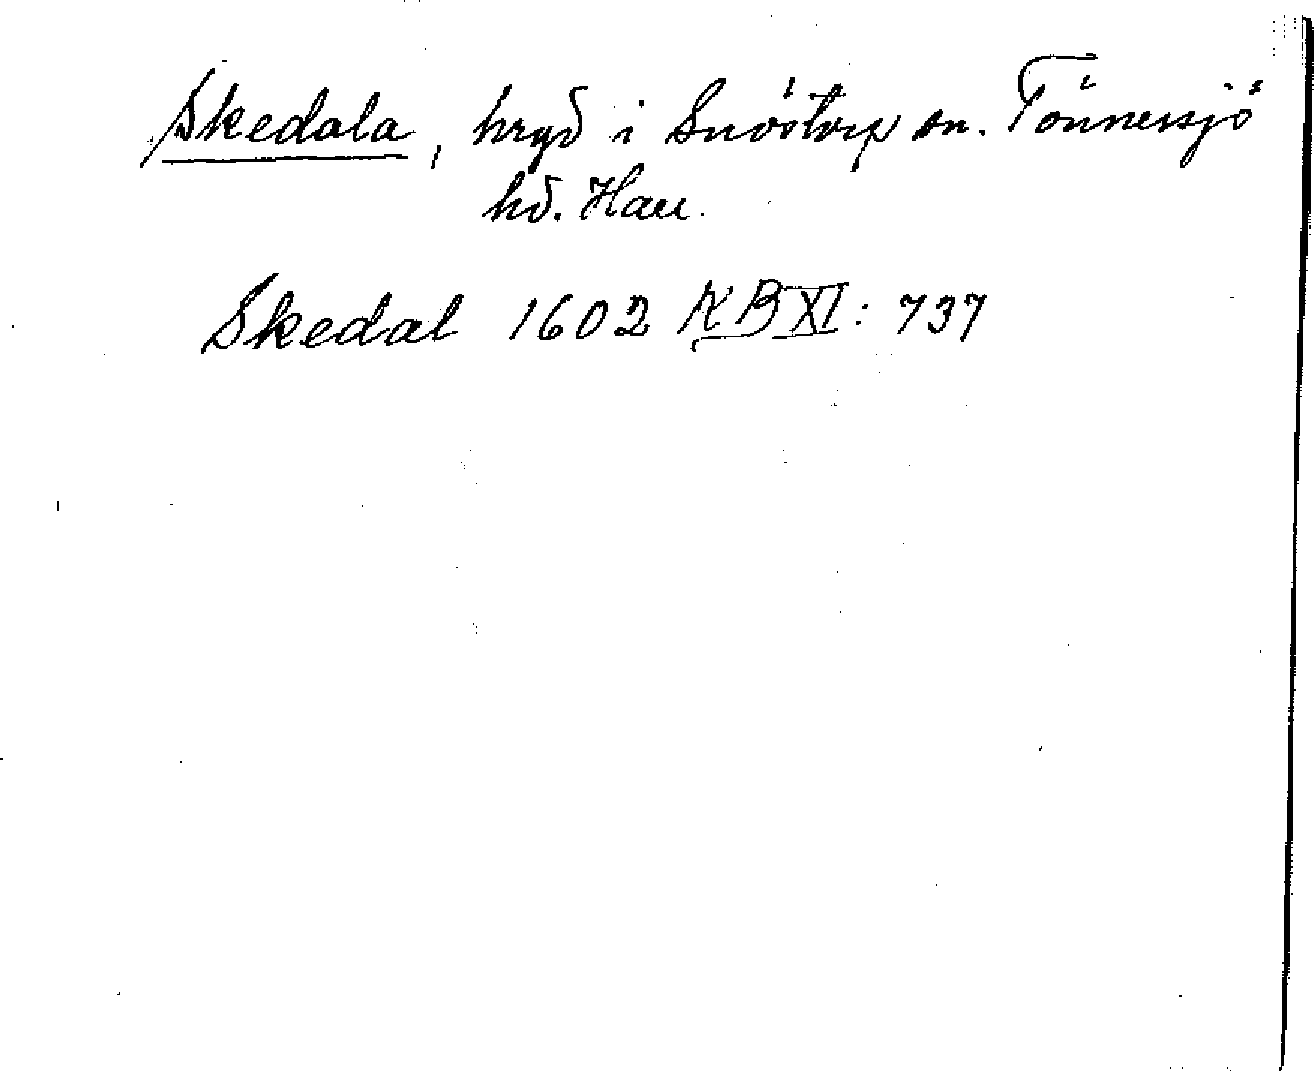 Skedala, hrgd i Snöstorp sn. Tönnersjö
hd. Hall.
Skedal 1602 KB XI: 737